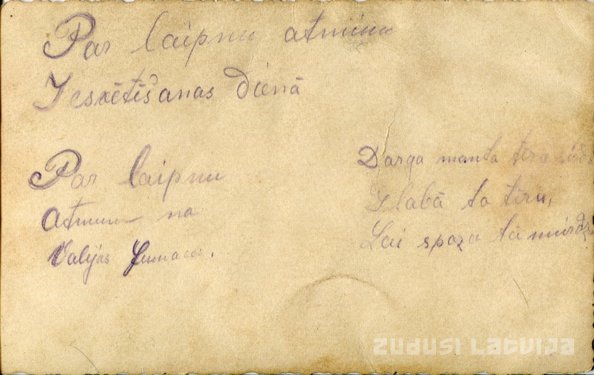 Par laipnu atmiņu
Iesvētīšanas dienā
Par laipnu
atmiņu no
Valijas
Darga manta tira
Glabā to tīru,
Lai spoža tā mirdz
ZUDUSI LATVIJA